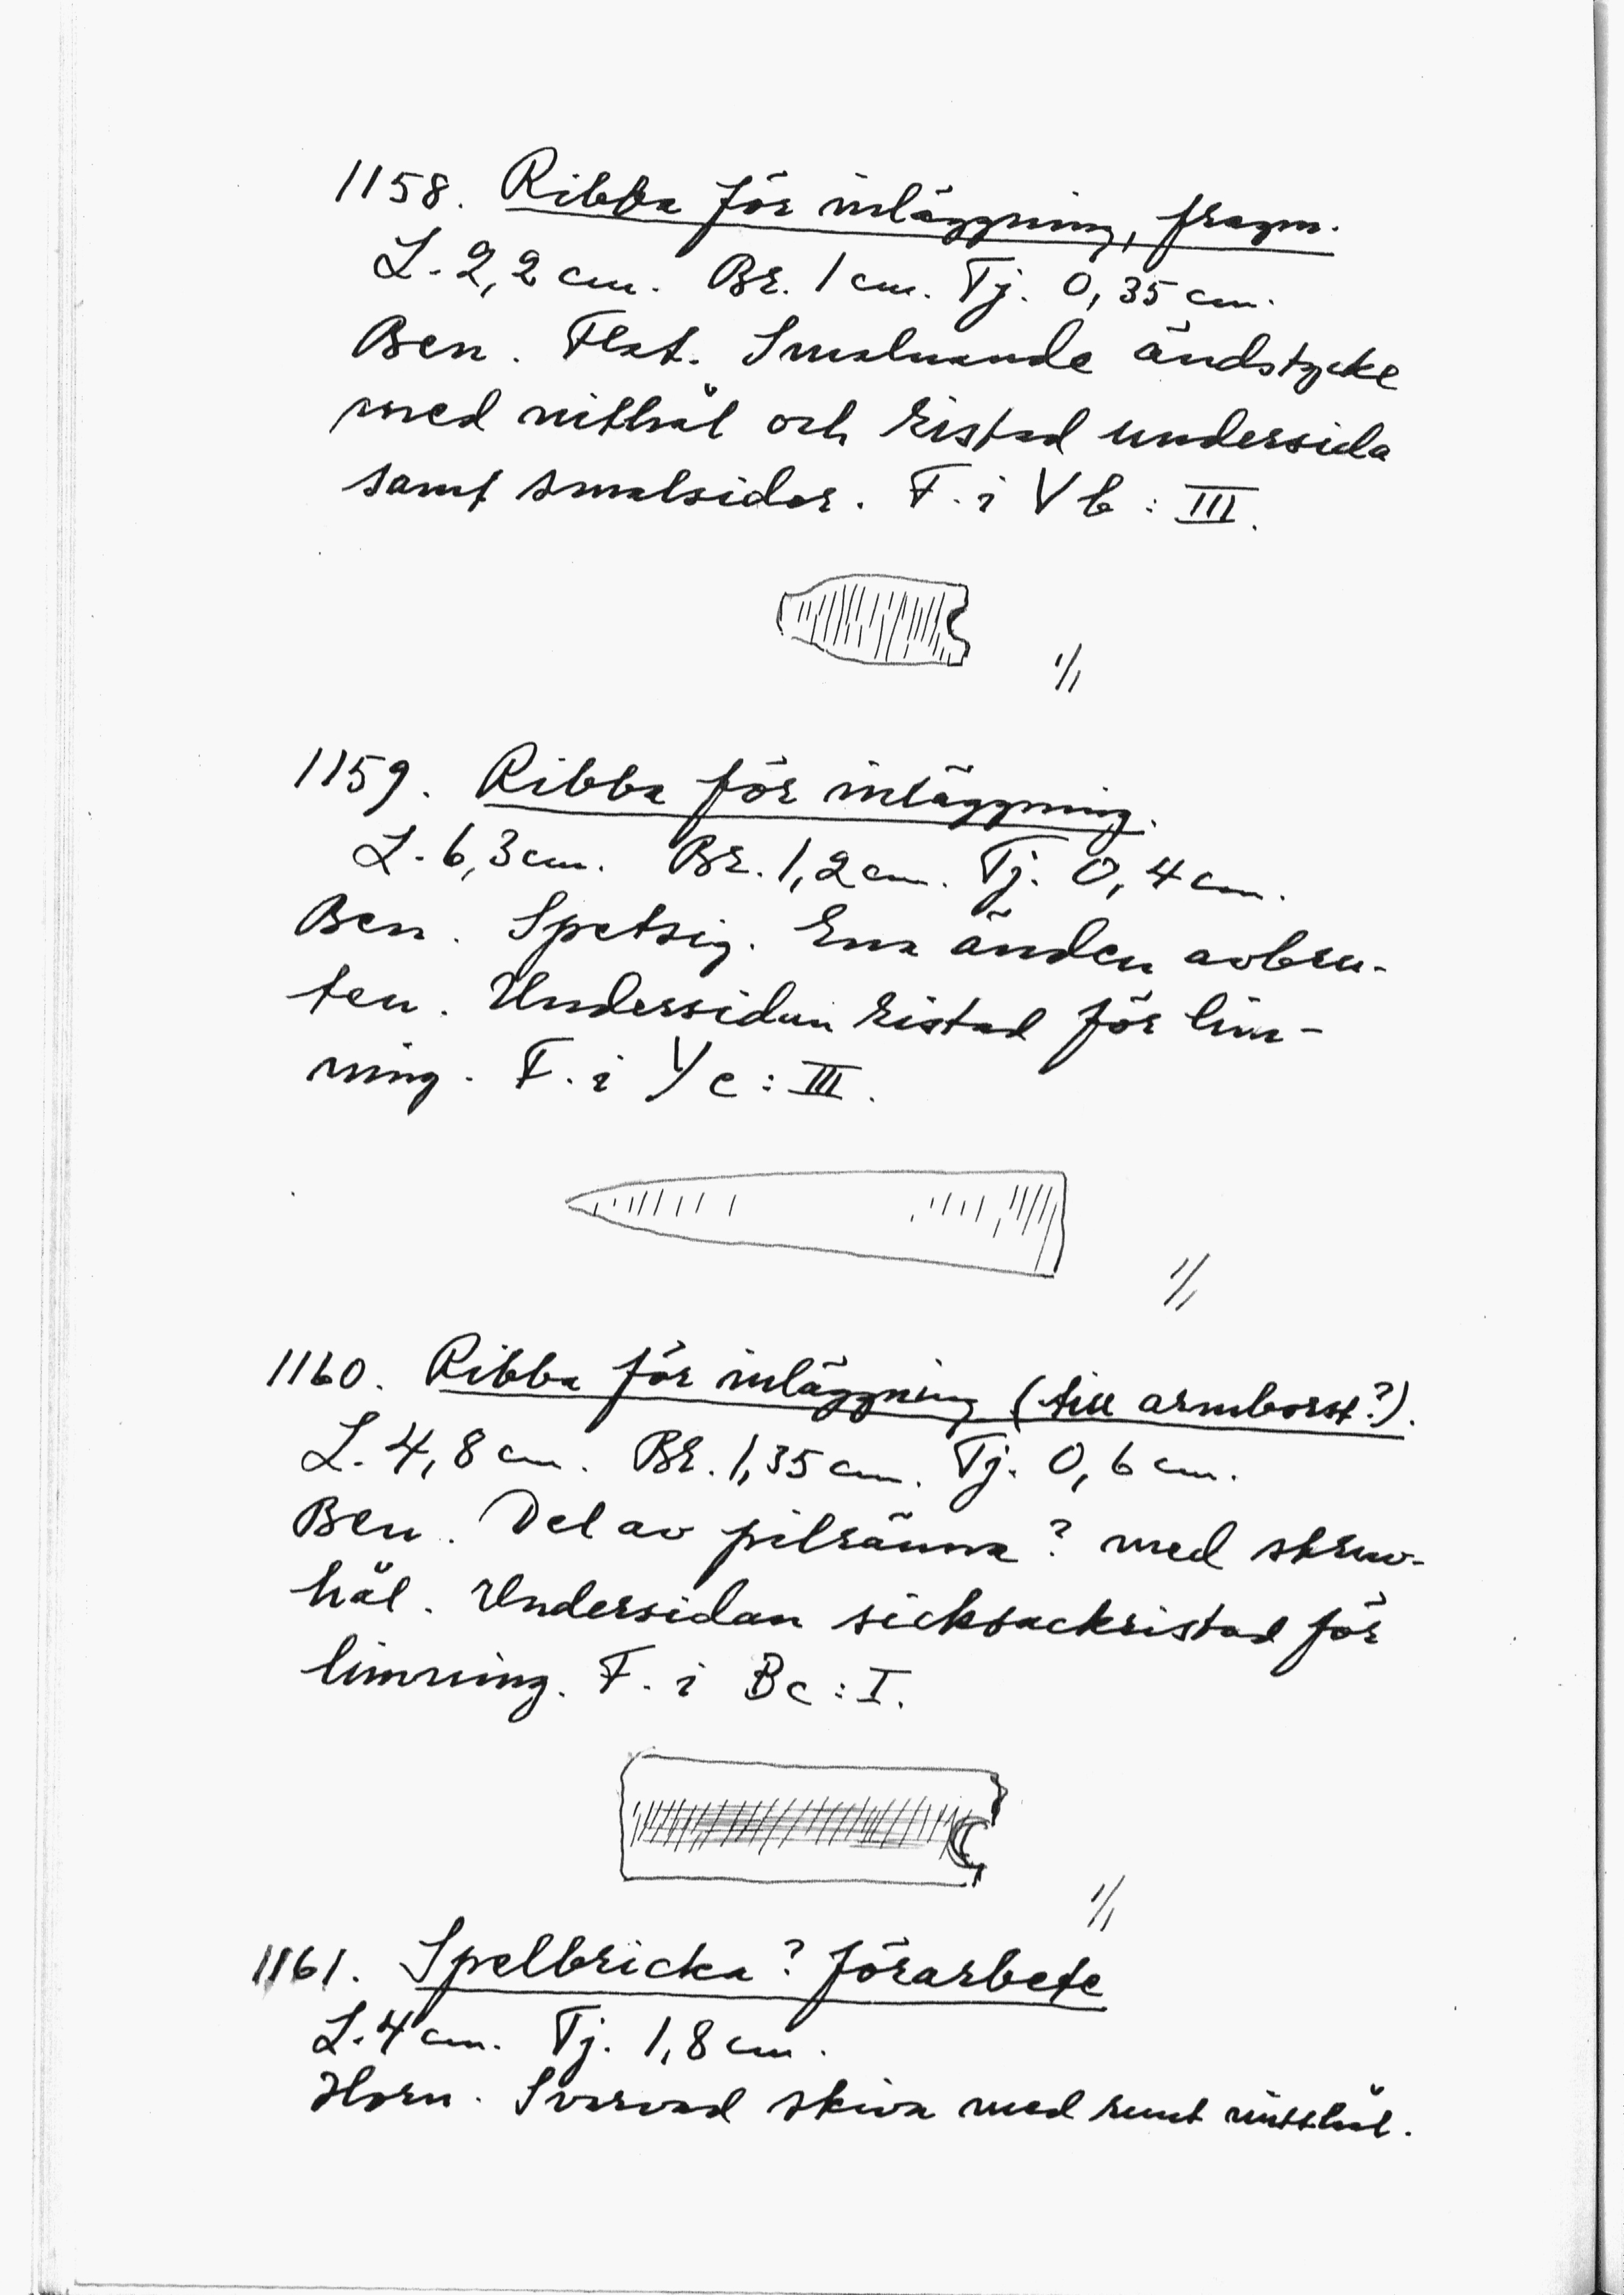 1158. Ribba för inläggning, fragm.
L. 2,2 cm. Br. 1 cm. Tj. 0,35 cm.
Ben. Flat. Smalnande ändstycke
med nithål och ristad undersida
samt smalsidor. F. i Vb : III.
1/1
1159. Ribba för inläggning.
L. 6,3 cm. Br. 1,2 cm. Tj. 0,4 cm.
Ben. Spetsig. Ena änden avbru-
ten. Undersidan ristad för lim-
ning. F. i Vc : III.
1/1
1160. Ribba för inläggning (till armborst?).
L. 4,8 cm. Br. 1,35 cm. Tj. 0,6 cm.
Ben. Del av pilränna? med skruv-
hål. Undersidan sicksackristad för
limning. F. i Bc : I.
1/1
1161. Spelbricka? förarbete
L. 4 cm. Tj. 1,8 cm.
Horn. Svarvad skiva med runt mitthål.